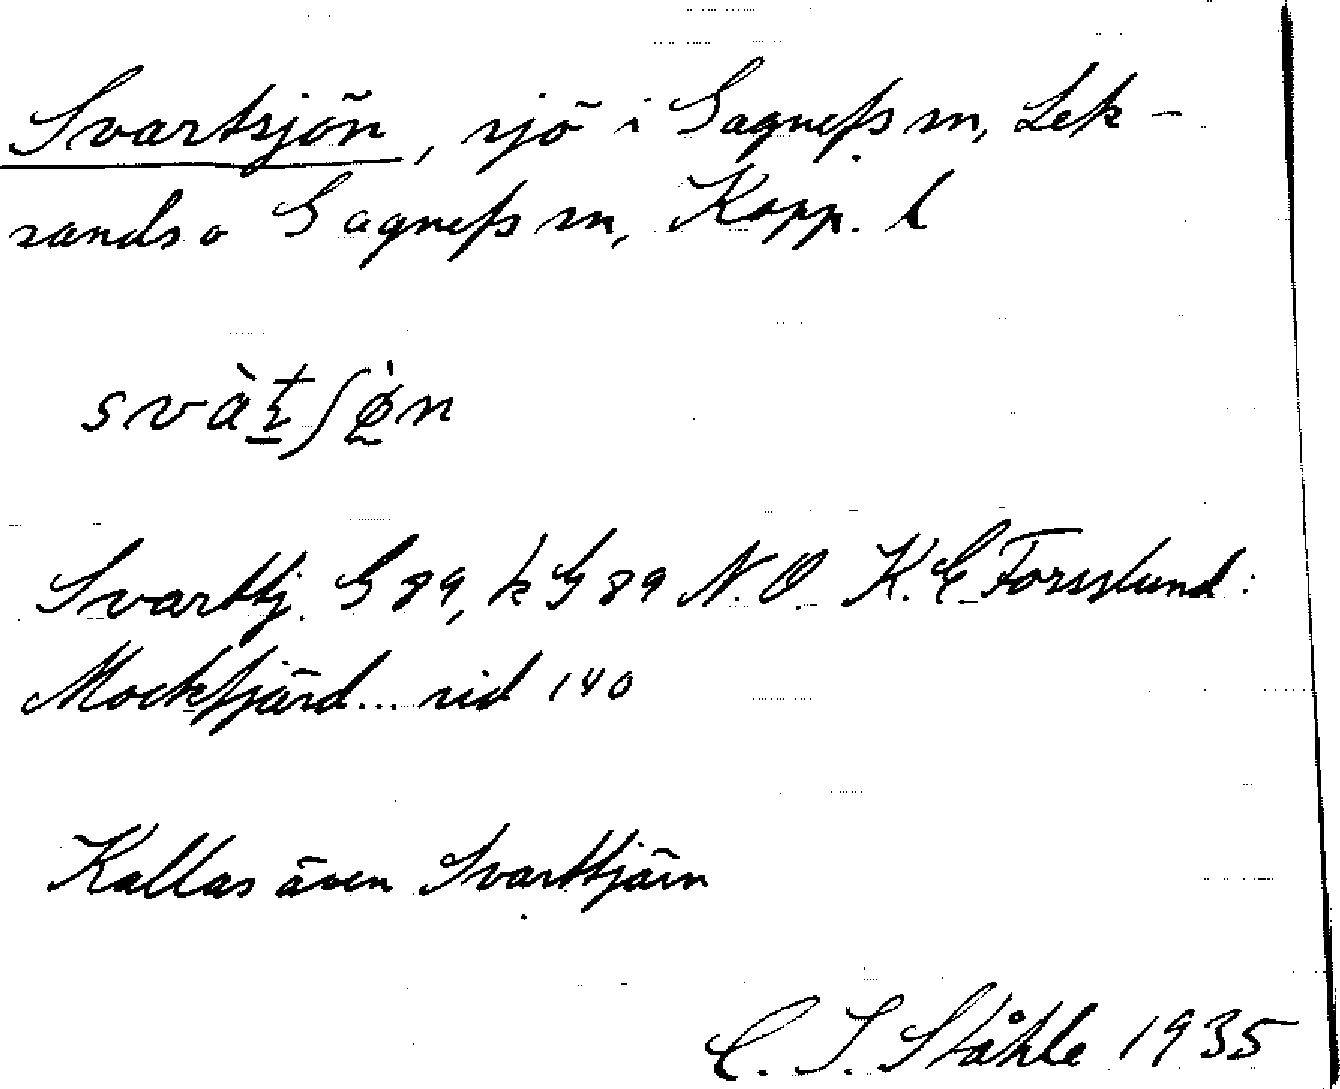 Svartsjön, sjö i Gagnefs sn, Lek-
sands o Gagnefs sn, Kopp. l
Svarttj. G 89, k G 89 N.O. K.E Forsslund:
Mockfjärd... sid 140
Kallas även Svarttjärn
C. I. Ståhle 1935